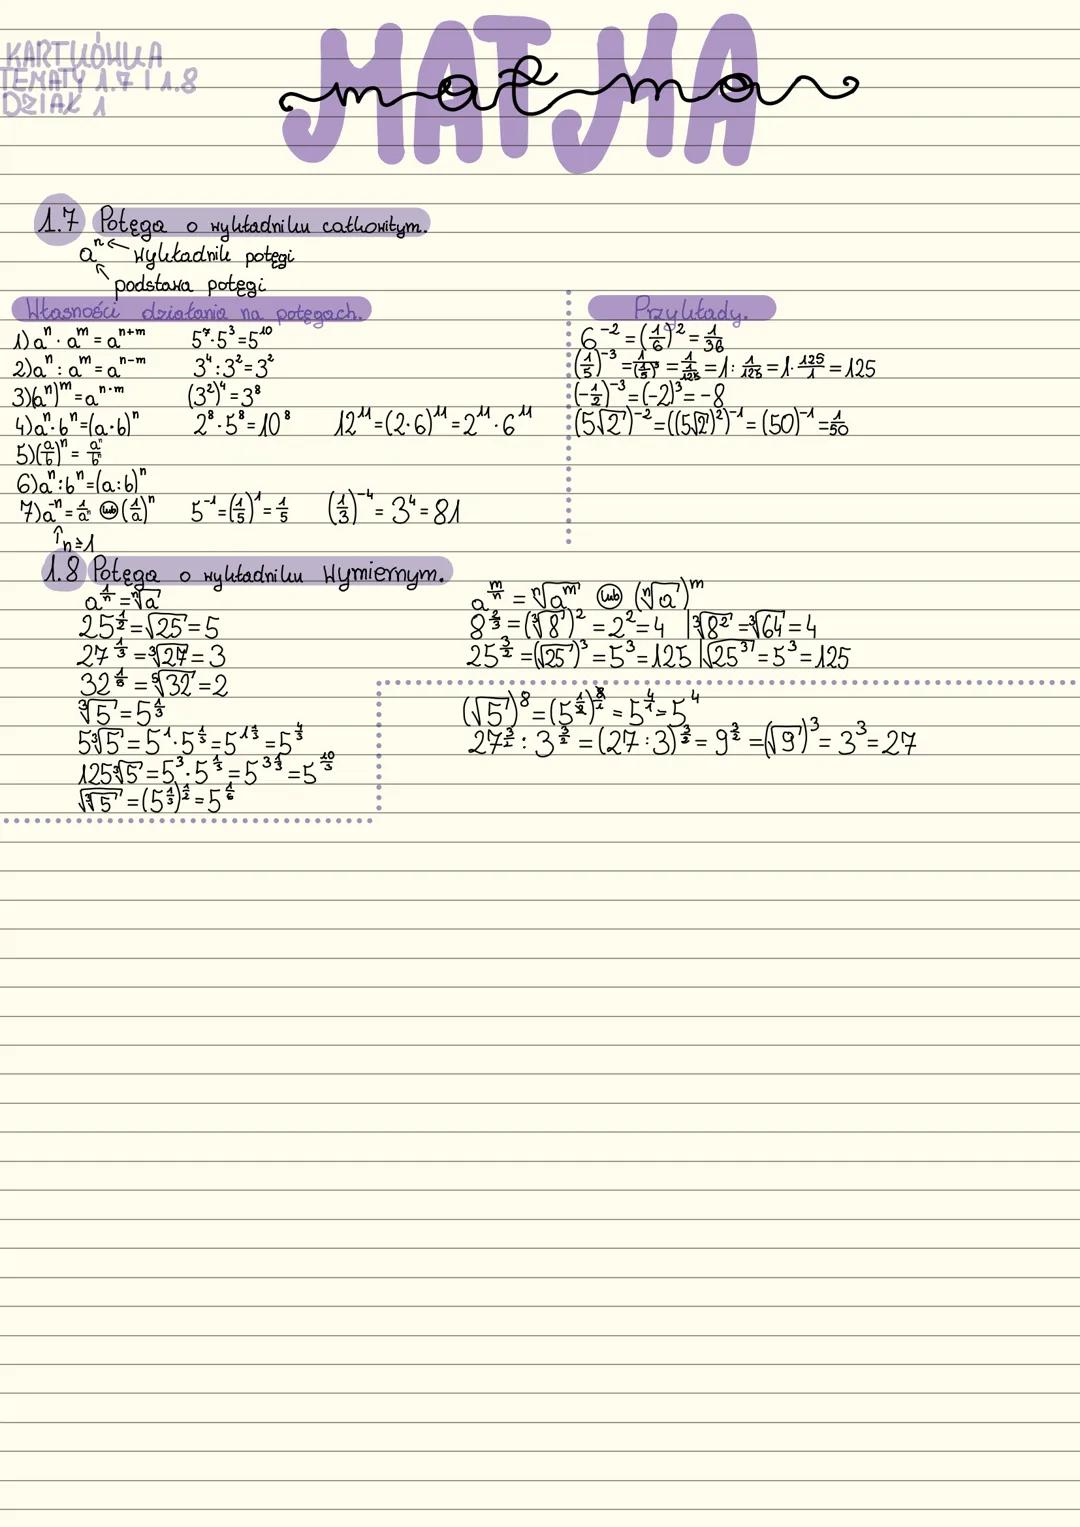 KARTKÓWKA
TEMATY 1.7 I 1.8
DZIAŁ 1
MATMA
matma
1.7 Potęga o wykładniku całkowitym.
aⁿ ← wykładnik potęgi
podstawa potęgi
Własności działania na potęgach.
1) aⁿ · aᵐ = aⁿ⁺ᵐ 5⁷·5³=5¹⁰
2) aⁿ : aᵐ = aⁿ⁻ᵐ 3⁴:3²=3²
3) (aⁿ)ᵐ = aⁿ·ᵐ (3²)⁴=3⁸
4) aⁿ·bⁿ=(a·b)ⁿ 2⁸·5⁸=10⁸ 12¹¹=(2·6)¹¹=2¹¹·6¹¹
5) (a/b)ⁿ = aⁿ/bⁿ
6) aⁿ:bⁿ=(a:b)ⁿ
7) a⁻ⁿ=1/aⁿ lub (1/a)ⁿ 5⁻¹=(1/5)¹=1/5 (1/3)⁻⁴=3⁴=81
n≥1
Przykłady.
6⁻²=(1/6)²=1/36
(1/5)⁻³=1/(1/5)³=1/(1/125)=1:1/125=1·125/1=125
(-1/2)⁻³=(-2)³=-8
(5√2)⁻²=((5√2)²)⁻¹=(50)⁻¹=1/50
1.8 Potęga o wykładniku wymiernym.
a^(1/n)=ⁿ√a
25^(1/2)=√25=5
27^(1/3)=³√27=3
32^(1/5)=⁵√32=2
³√5=5^(1/3)
5³√5=5¹·5^(1/3)=5^(1 1/3)=5^(4/3)
125³√5=5³·5^(1/3)=5^(3 1/3)=5^(10/3)
√³√5=(5^(1/3))^(1/2)=5^(1/6)
a^(m/n)=ⁿ√aᵐ lub (ⁿ√a)ᵐ
8^(2/3)=(³√8)²=2²=4 | ³√8²=³√64=4
25^(3/2)=(√25)³=5³=125 | √25³=5³=125
(√5)⁸=(5^(1/2))^(8/1)=5^(4/1)=5⁴
27^(3/2):3^(3/2)=(27:3)^(3/2)=9^(3/2)=(√9)³=3³=27